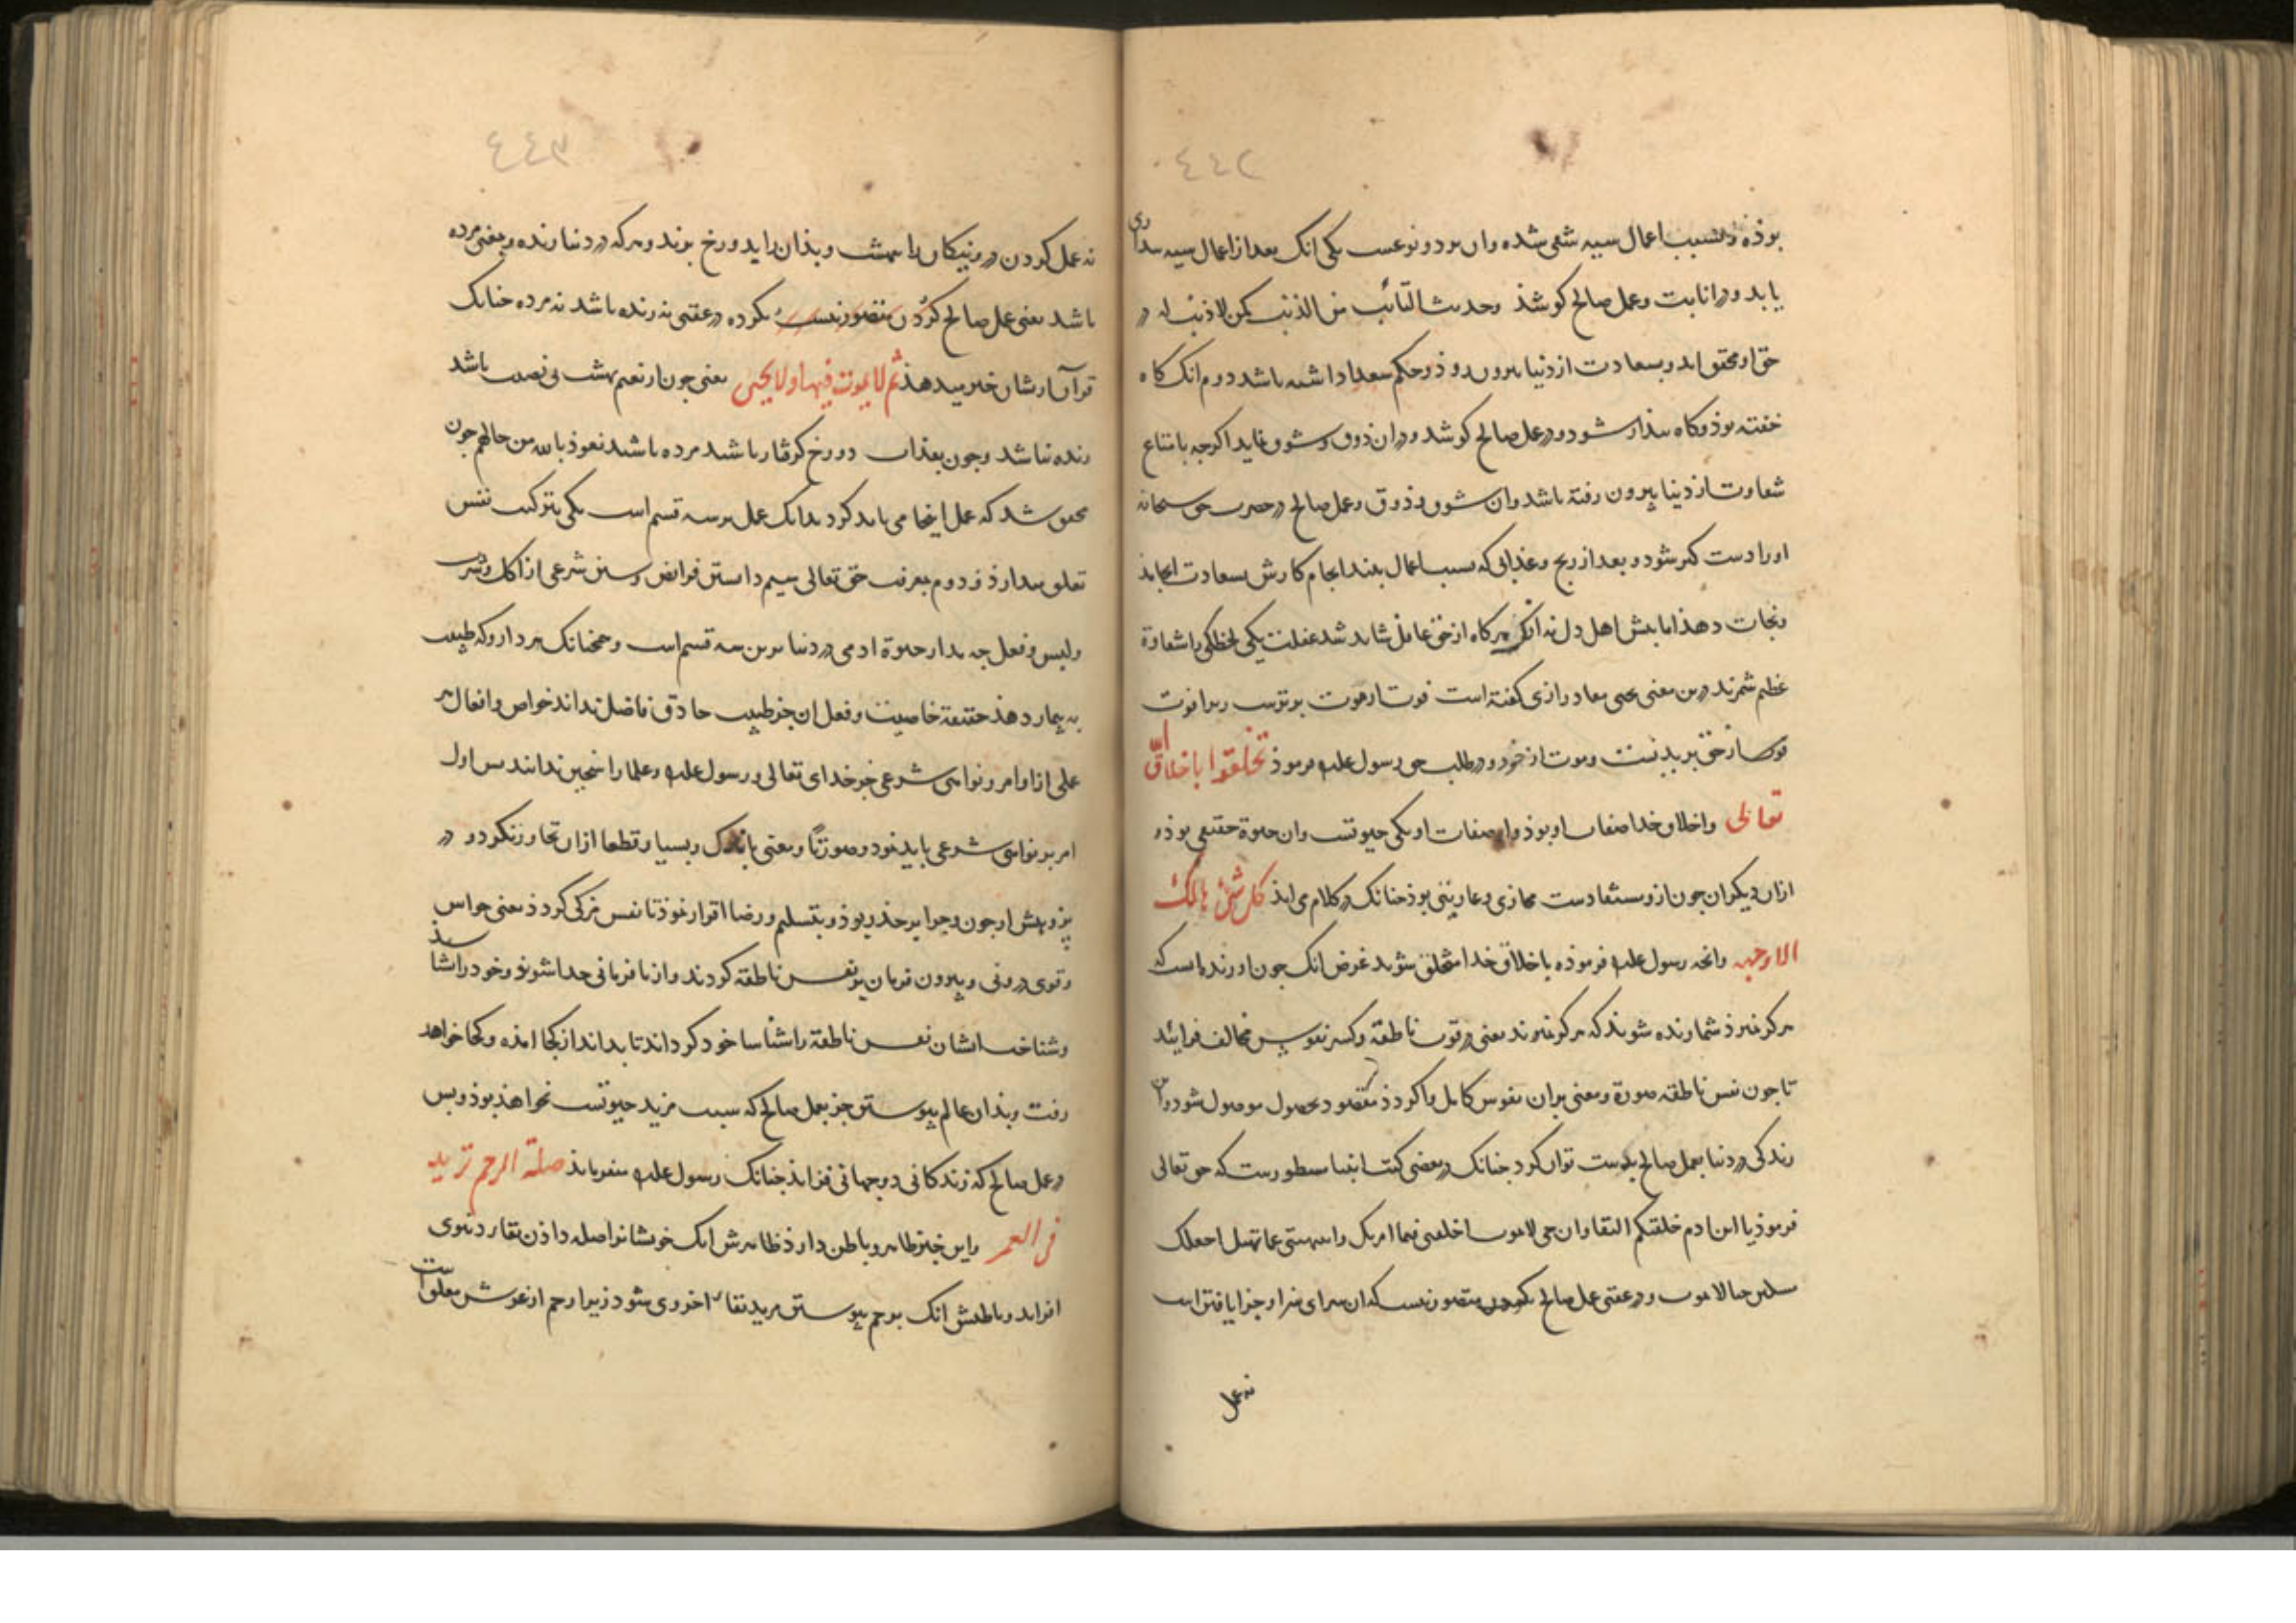 ٤٤٢
بوذه و بسبب اعمال سیه شقی شده وان بر دو نوعست یکی انک بعد از اعمال سیه بیداری
یابد و در انابت و عمل صالح کوشذ وحدیث التائب من الذنب کمن لا ذنب له در
حق او محقق اید و بسعادت از دنیا بیرون روذ و حکم سعدا داشته باشد دوم انک کاه
خفته بوذ و کاه بیذار شود و در عمل صالح کوشد و دران ذوق و شوق نماید اکرچه بامتاع
شقاوت از دنیا بیرون رفته باشد وان شوق و ذوق و عمل صالح در حضرت حق سبحانه
اورا دست کیر شود و بعد از رنج و عذابی که بسبب اعمال بیند انجام کارش بسعادت انجامذ
و نجات دهذ اما بیش اهل دل نه انکر هرکاه از حق غافل شاید شد غفلت یکی لحظکی را شقاوة
عظیم شمرند درین معنی یحیی معاد رازی کفته است فوت از موت بترست زیرا فوت
از حق بریدنست و موت از خود و در طلب حق رسول علیه فرموذ تخلقوا باخلاق الله
تعالی واخلاق خدا صفات او بوذ واز صفات او یکی حیوتست وان حیوة حقیقی بوذ و
ازان دیکران چون ازو مستفادست مجازی و عاریتی بوذ چنانک در کلام می ایذ کل شیٔ هالک
الا وجهه وانچه رسول علیه فرموذه باخلاق خدا متخلق شوید غرض انک چون او زنده ایست که
هرکز نمیرذ شما زنده شوند که هرکز نمیرند یعنی در قوت ناطقه و کسر نفوس مخالف فرایند
تا چون نفس ناطقه صورة و معنی بران نفوس کامل و کردذ مقصود بحصول موصول شود و این
زندکی در دنیا بعمل صالح بدست توان کرد چنانک در بعضی کتب انبیا مسطورست که حق تعالی
فرموذ یا ابن ادم خلقتکم للبقا وان حی لا اموت اطعنی فیما امرتک وانتهی عما نهیتک اجعلک
مثلی حیا لا یموت و در عقبی عمل صالح کردن متصور نیست که ان سرای سزا و جزا یافتن است
نه عمل
٤٤٣
نه عمل کردن در و نیکان را بهشت و بذان را بدوزخ برند و هرکه در دنیا زنده و بمعنی مرده
باشد یعنی عمل صالح کردن متصور نیست نکرده در عقبی نه زنده باشد نه مرده چنانک
قرآن ازشان خبر میدهذ ثم لا یموت فیها ولا یحیی یعنی چون از نعیم بهشت بی نصیب باشد
زنده نباشد و چون بعذاب دوزخ کرفتار باشد مرده باشد نعوذ بالله من حالهم چون
محقق شد که عمل اینجا می باید کرد بدانک عمل بر سه قسم است یکی بتزکیت نفس
تعلق میدارذ و دوم بمعرفت حق تعالی سیم دانستن فرایض و سنن شرعی از اکل و شرب
ولبس و فعل چه مدار حیوة ادمی در دنیا برین سه قسم است و همچنانک هر داروکه طبیب
به بیمار دهذ حقیقة خاصیت و فعل ان جز طبیب حاذق فاضل نداند خواص وافعال هر
عملی از اوامر و نواهی شرعی جز خدای تعالی و رسول علیه و علما راسخین ندانند بس اول
امر بر نواهی شرعی باید نمود و صورتا و معنی باندک و بسیار قطعا ازان تجاوز نکرد و در
پژوهش از چون و چرا بر حذر بوذ و بتسلیم و رضا اقرار نموذ تا نفس مزکی کردذ یعنی حواس
و قوی درونی و بیرون فرمان بر نفس ناطقه کردند و از نافرمانی جدا شوند و خود را شناسد
و شناخت ایشان نفس ناطقة را شناسا خود کرداند تا بداند از کجا امذه و کجا خواهد
رفت و بذان عالم پیوستن جز بعمل صالح که سبب مزید حیوتست نخواهد بوذ و بس
و عمل صالح که زندکانی دو جهانی فزایذ چنانک رسول علیه میفرمایذ صلة الرحم تزید
فی العمر واین خبر ظاهر و باطن دارذ ظاهرش انک خویشانرا صله داذن بقا دنیوی
افزاید و باطنش انک برحم پیوستن مزید بقاء اخروی شود زیرا رحم از عرش معلق است